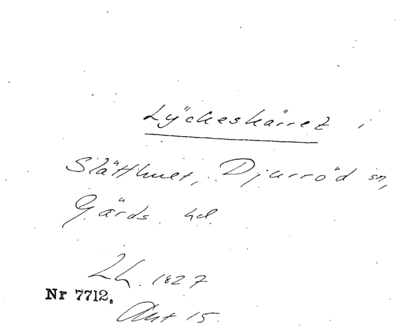 Lyckeskärret i
Slätthult, Djurröd sn,
Gärds hd.
LL. 1827
Nr 7712.
Akt 15.